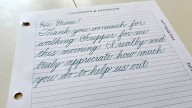 Hi Mom!
Thank you so much for
walking Pepper for me
this morning! I really and
truly appreciate how much
you do to help us out